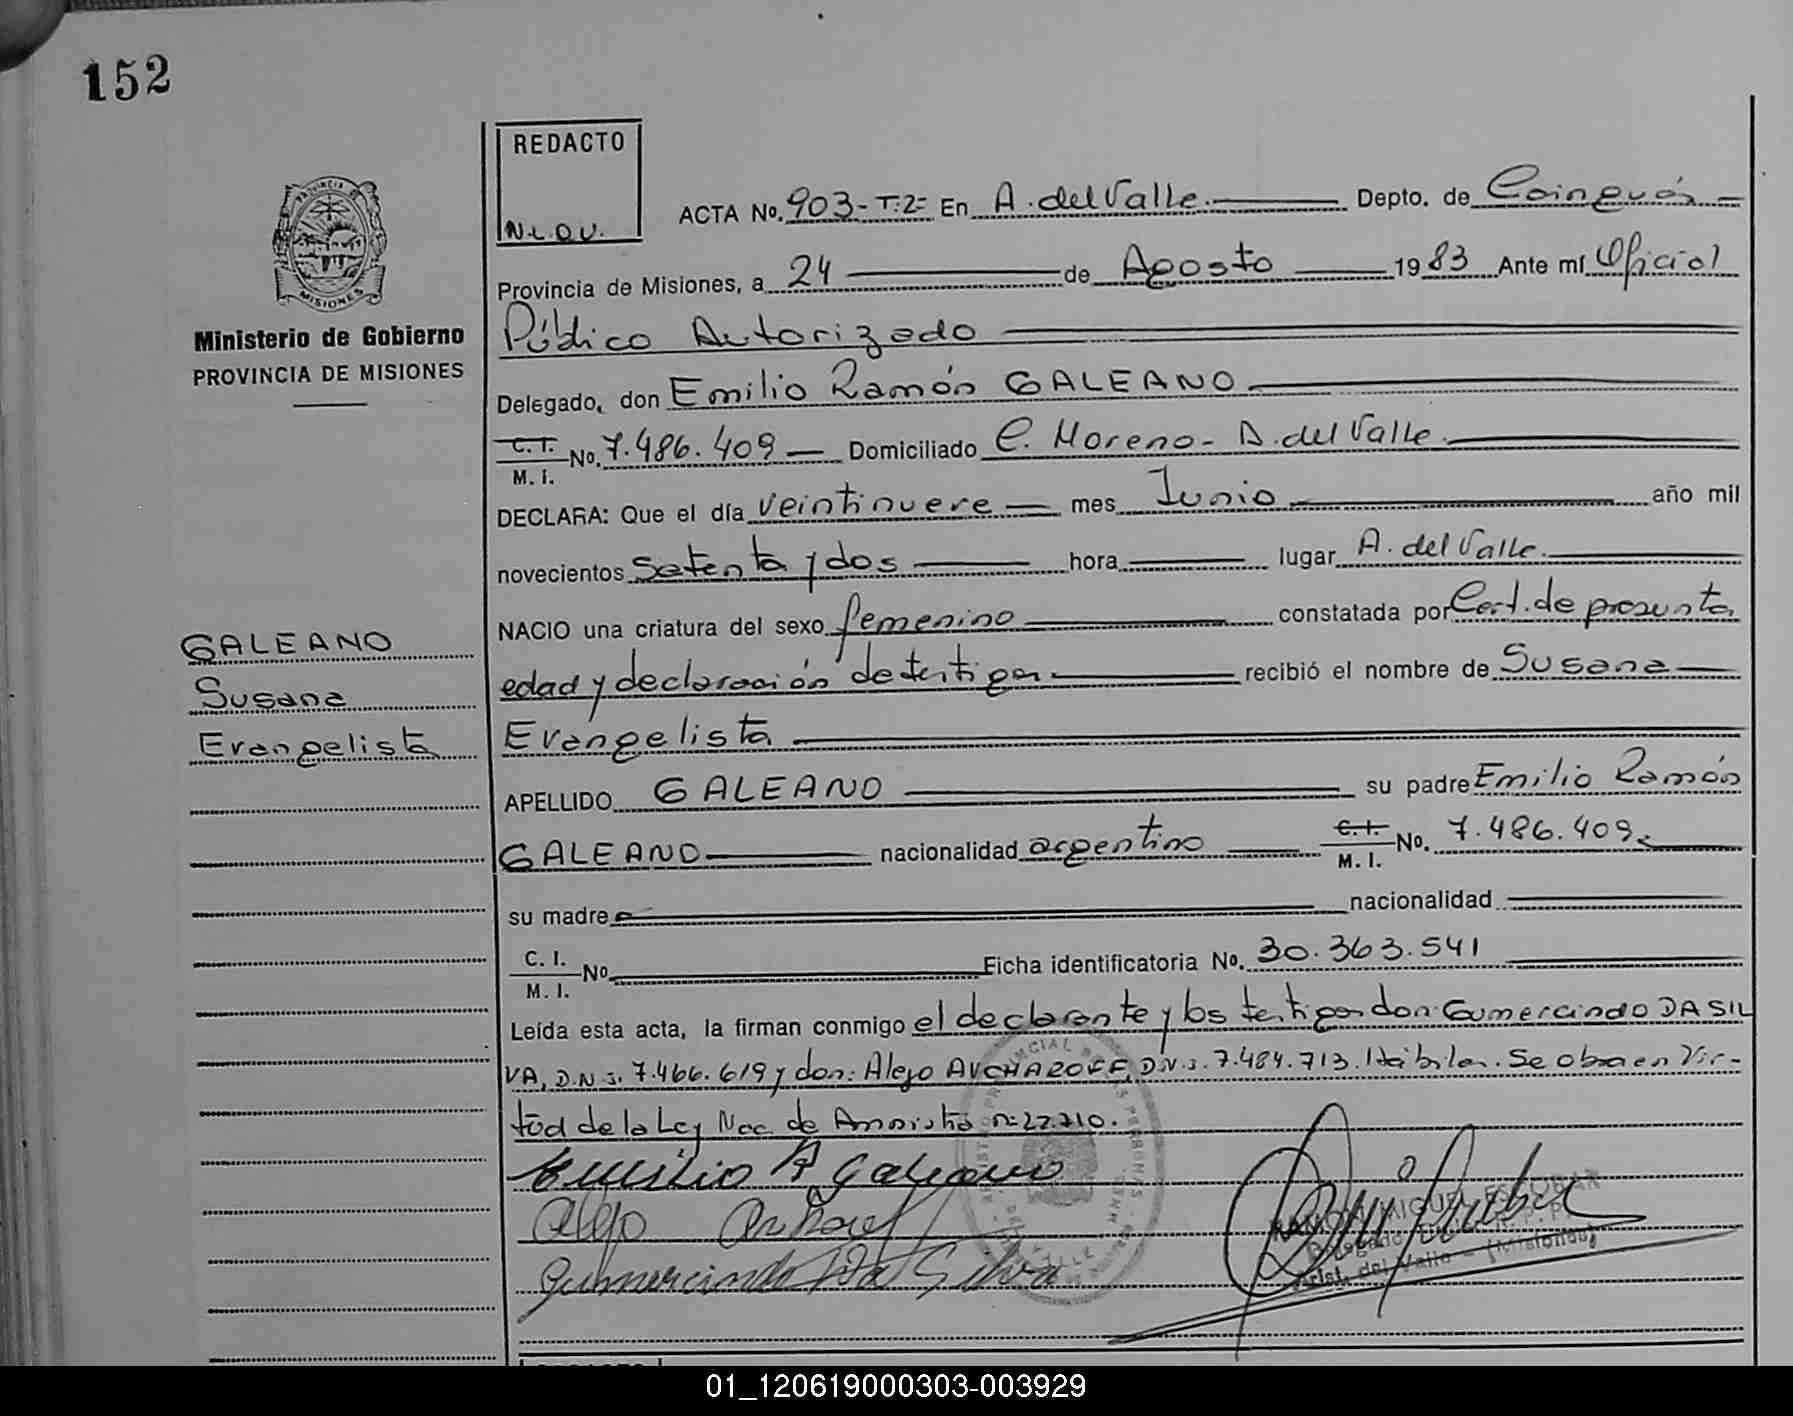 152
REDACTO
N.L.O.V.
ACTA No. 903-T.2= En A. del Valle. Depto. de Cainguás
Provincia de Misiones, a 24 de Agosto 1983 Ante mí Oficial
Público Autorizado
Delegado, don Emilio Ramón GALEANO
C. I. M. I. No. 7.486.409 Domiciliado C. Moreno - A. del Valle.
DECLARA: Que el día veintinueve mes Junio año mil
novecientos setenta y dos hora lugar A. del Valle.
NACIO una criatura del sexo femenino constatada por Cert. de presunta
edad y declaración de testigos recibió el nombre de Susana
Evangelista
APELLIDO GALEANO su padre Emilio Ramón
GALEANO nacionalidad argentino C. I. M. I. No. 7.486.409.
su madre nacionalidad
C. I. M. I. No Ficha identificatoria No. 30.363.541
Leída esta acta, la firman conmigo el declarante y los testigos don: Gumercindo DA SIL
VA, D.N.I. 7.466.619 y don: Alejo AVCHAROFF, D.N.I. 7.484.713. Hábiles. Se obra en Vir-
tud de la Ley Nac. de Amnistía n: 22.710.
Emilio R Galeano
Alejo
Gumercindo Da Silva
RAMON MIGUEL ESCOBAR
Delegado
Arist. del Valle - (Misiones)
PROVINCIA DE
MISIONES
Ministerio de Gobierno
PROVINCIA DE MISIONES
GALEANO
Susana
Evangelista
01_120619000303-003929